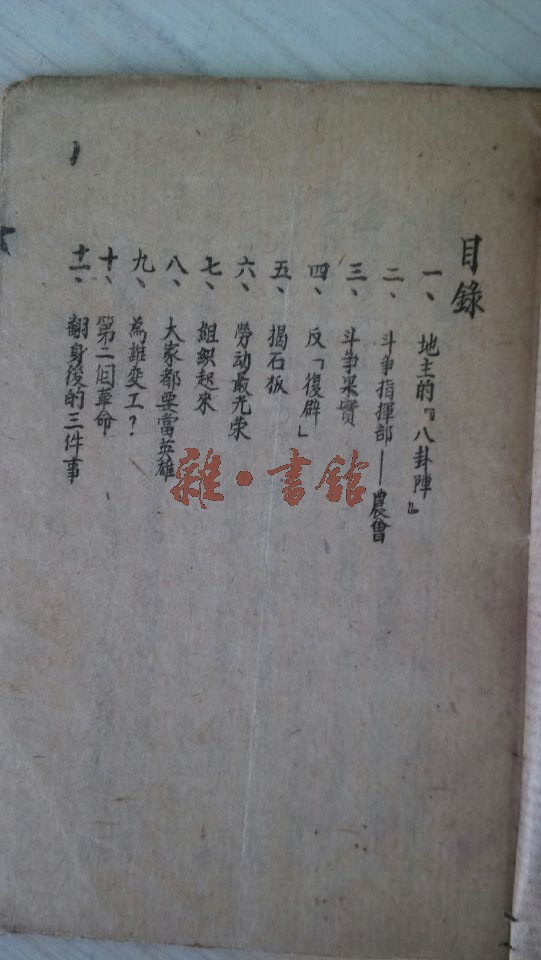 目錄
一、地主的『八卦陣』
二、斗爭指揮部——農會
三、斗爭果實
四、反「復辟」
五、揭石板
六、勞动最光荣
七、組织起來
八、大家都要當英雄
九、為誰变工？
十、第二個革命
十一、翻身後的三件事
雜·書館